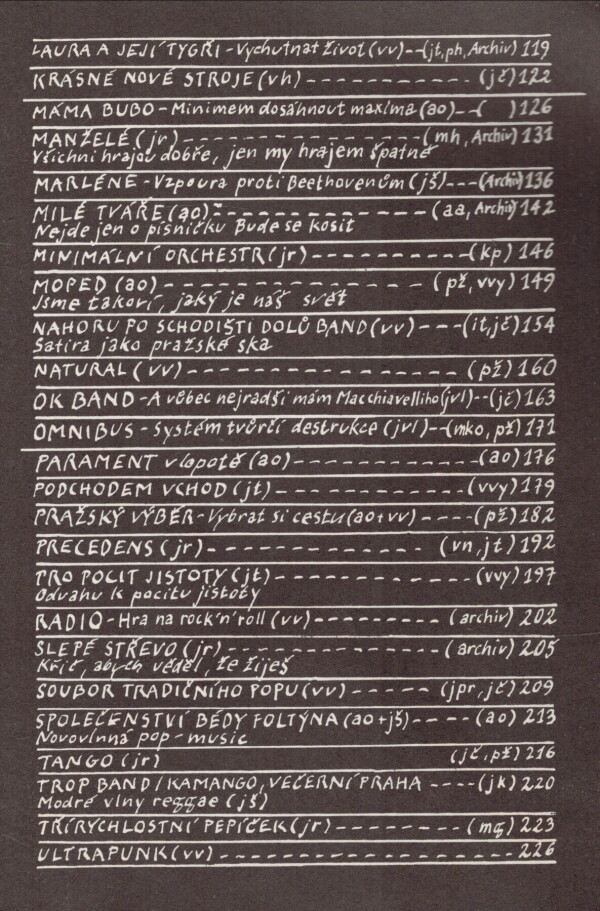 LAURA A JEJÍ TYGŘI - Vychutnat život (vv) -- (jt, ph, Archiv) 119
KRÁSNÉ NOVÉ STROJE (vh) ---------- (jč) 122
MÁMA BUBO - Minimem dosáhnout maxima (ao) -- (    ) 126
MANŽELÉ (jr) -------------- (mh, Archiv) 131
Všichni hrajou dobře, jen my hrajem špatně
MARLÉNE - Vzpoura proti Beethovenům (jš) --- (Archiv) 136
MILÉ TVÁŘE (ao) ------------ (aa, Archiv) 142
Nejde jen o písničku Bude se kosit
MINIMÁLNÍ ORCHESTR (jr) ----------- (kp) 146
MOPED (ao) ---------------- (pž, vvy) 149
Jsme takoví, jaký je náš svět
NAHORU PO SCHODIŠTI DOLŮ BAND (vv) --- (it, jč) 154
Satira jako pražské ska
NATURAL (vv) ------------------ (pž) 160
OK BAND - A vůbec nejradši mám Macchiavelliho (jvl) -- (jč) 163
OMNIBUS - Systém tvůrčí destrukce (jvl) -- (mko, pž) 171
PARAMENT v lopotě (ao) ------------ (ao) 176
PODCHODEM VCHOD (jt) ------------ (vvy) 179
PRAŽSKÝ VÝBĚR - Vybrat si cestu (ao + vv) ---- (pž) 182
PRECEDENS (jr) ------------- (vn, jt) 192
PRO POCIT JISTOTY (jt) ------------ (vvy) 197
Odvahu k pocitu jistoty
RADIO - Hra na rock'n'roll (vv) -------- (archiv) 202
SLEPÉ STŘEVO (jr) ------------- (archiv) 205
Křič, abych věděl, že žiješ
SOUBOR TRADIČNÍHO POPU (vv) ----- (jpr, jč) 209
SPOLEČENSTVÍ BÉDY FOLTÝNA (ao + jš) ---- (ao) 213
Novovlnná pop-music
TANGO (jr) (jč, pž) 216
TROP BAND / KAMANGO, VEČERNÍ PRAHA ---- (jk) 220
Modré vlny reggae (jš)
TŘÍRYCHLOSTNÍ PEPÍČEK (jr) -------- (mg) 223
ULTRAPUNK (vv) -------------------- 226